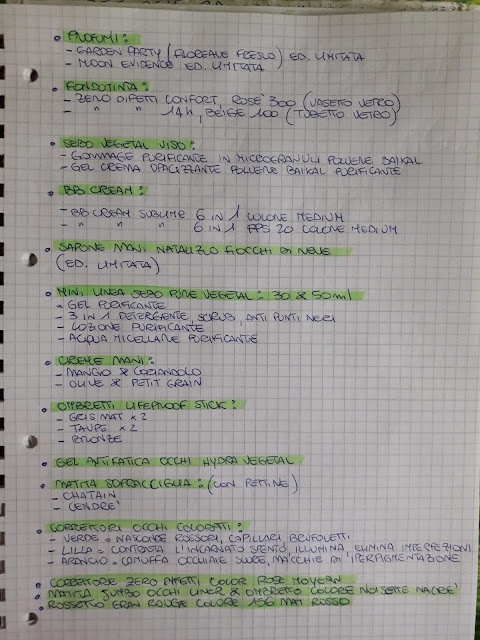 • PROFUMI:
- GARDEN PARTY (FLOREALE FRESCO) ED. LIMITATA
- MOON EVIDENCE ED. LIMITATA
• FONDOTINTA:
- ZERO DIFETTI CONFORT, ROSE' 300 (VASETTO VETRO)
- " " 14h, BEIGE 100 (TUBETTO VETRO)
• SEBO VEGETAL VISO:
- GOMMAGE PURIFICANTE IN MICROGRANULI POLVERE BAIKAL
- GEL CREMA OPACIZZANTE POLVERE BAIKAL PURIFICANTE
• BB CREAM:
- BB CREAM SUBLIME 6 IN 1 COLORE MEDIUM
- " " " 6 IN 1 FPS 20 COLORE MEDIUM
• SAPONE MANI NATALIZIO FIOCCHI DI NEVE
(ED. LIMITATA)
• MINI LINEA SEBO PURE VEGETAL: 30 & 50ml
- GEL PURIFICANTE
- 3 IN 1 DETERGENTE, SCRUB, ANTI PUNTI NERI
- LOZIONE PURIFICANTE
- ACQUA MICELLARE PURIFICANTE
• CREME MANI:
- MANGO & CORIANDOLO
- OLIVE & PETIT GRAIN
• OMBRETTI LIFEPROOF STICK:
- GRIS MAT x 2
- TAUPE x 2
- BRONZE
• GEL ANTIFATICA OCCHI HYDRA VEGETAL
• MATITA SOPRACCIGLIA: (CON PETTINE)
- CHATAIN
- CENDRE'
• CORRETTORI OCCHI COLORATI:
- VERDE = NASCONDE ROSSORI, CAPILLARI, BRUFOLETTI
- LILLA = CONTRASTA L'INCARNATO SPENTO, ILLUMINA, ELIMINA IMPERFEZIONI
- ARANCIO = CAMUFFA OCCHIAIE SCURE, MACCHIE DI IPERPIGMENTAZIONE
• CORRETTORE ZERO DIFETTI COLOR ROSE MOYEN
• MATITA JUMBO OCCHI LINER & OMBRETTO COLORE NOISETTE NACRE'
• ROSSETTO GRAN ROUGE COLORE 156 MAT ROSSO